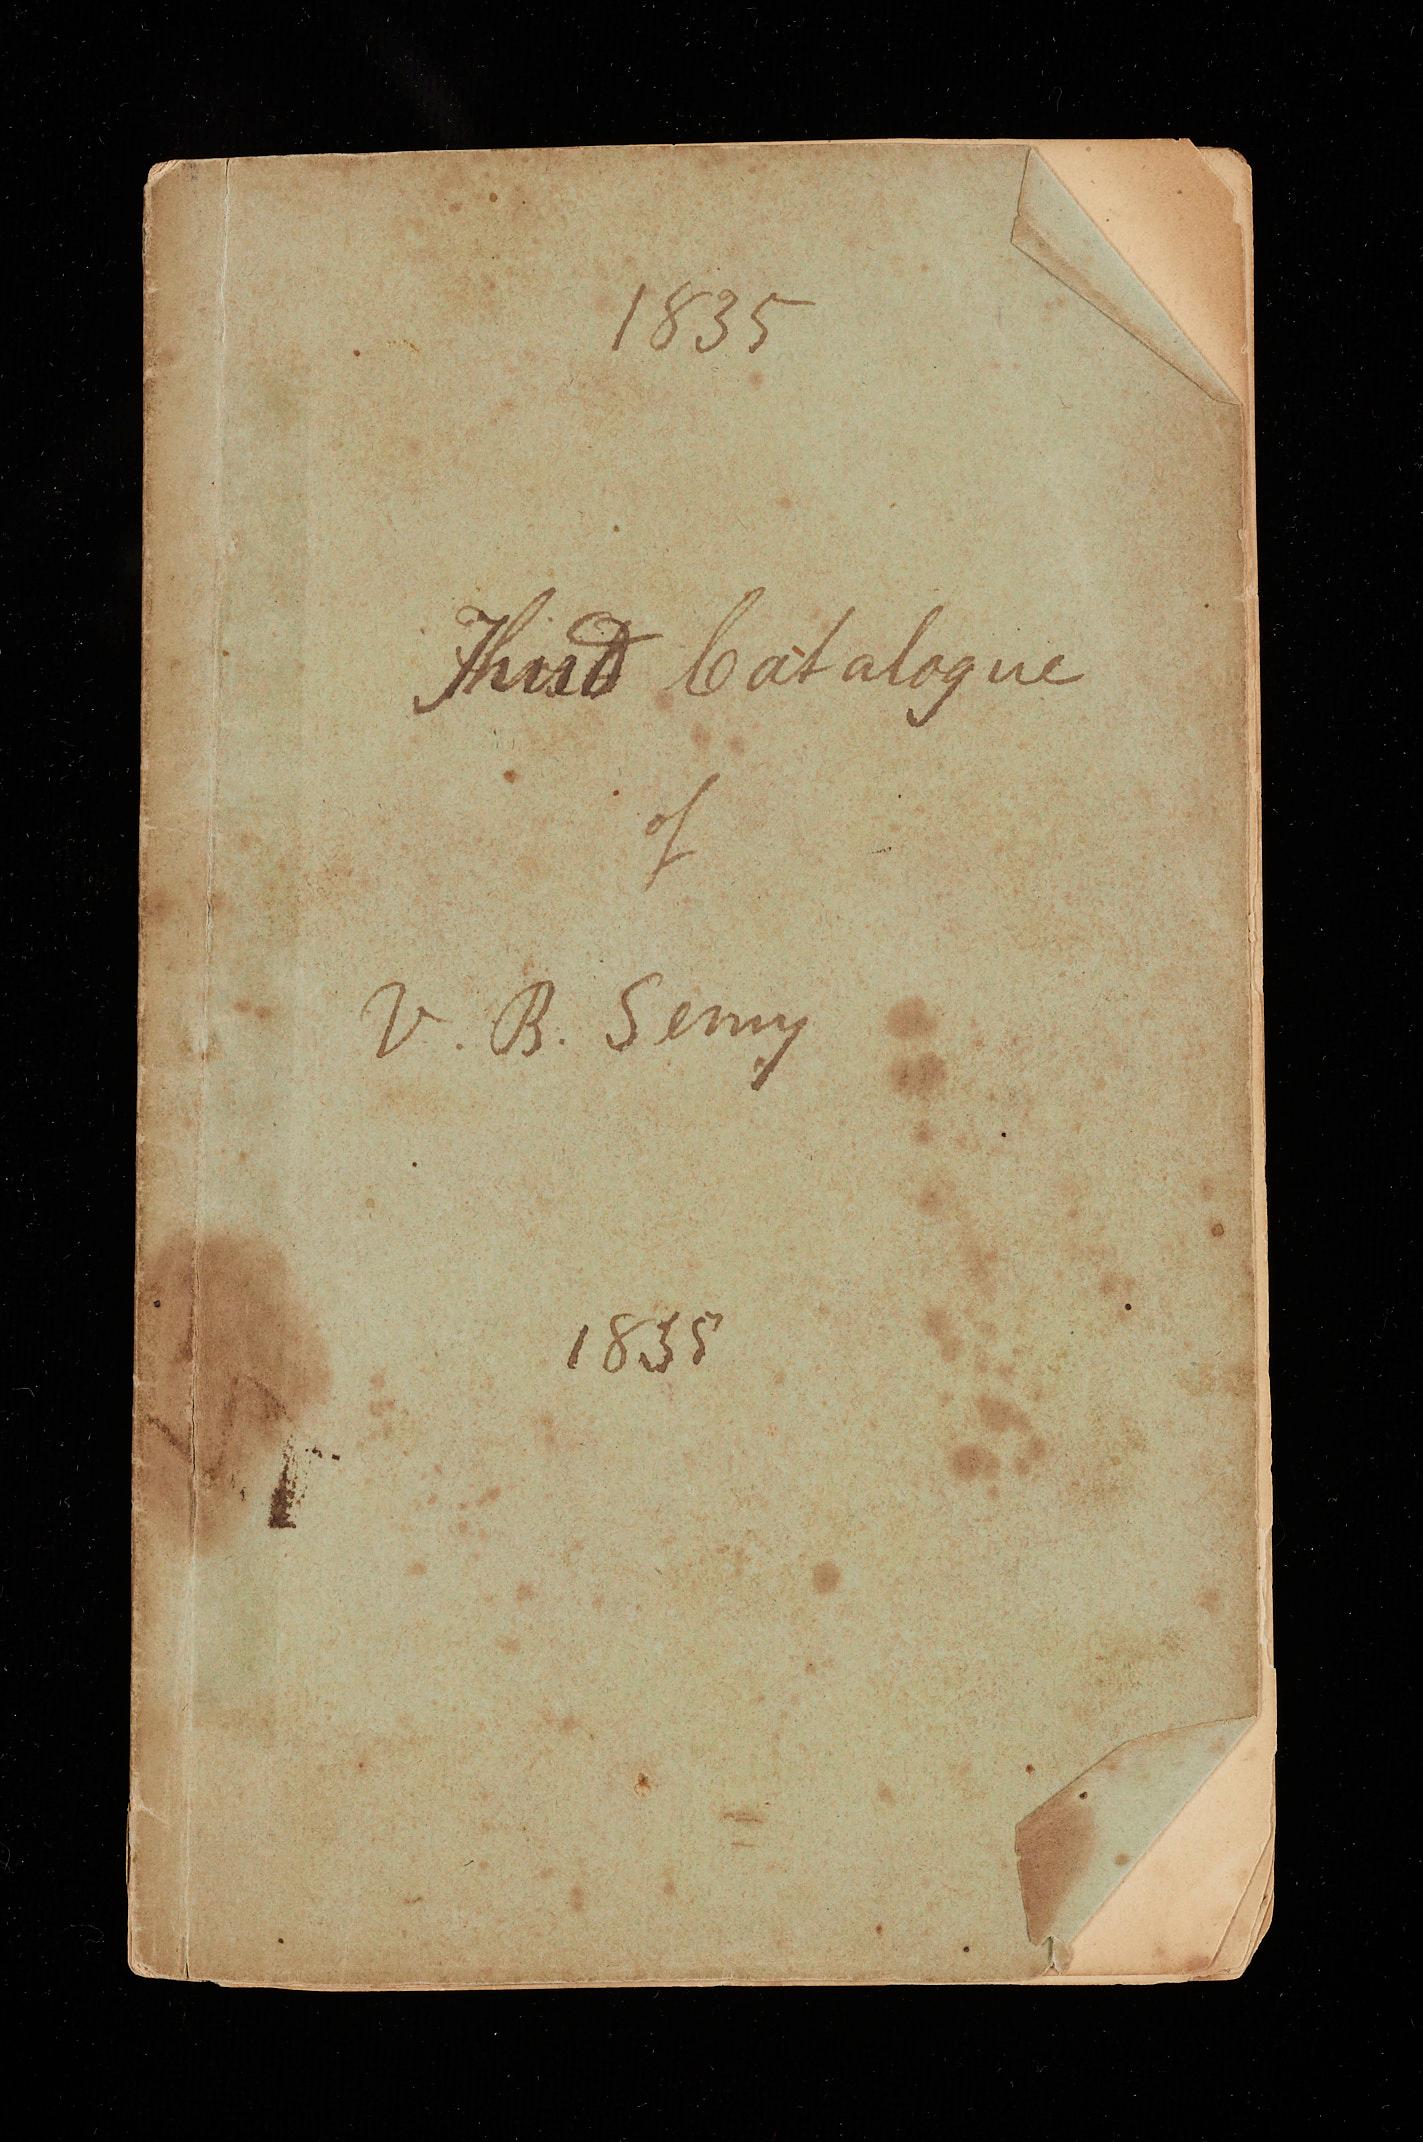 1835
Third Catalogue
of
V. B. Semy
1835